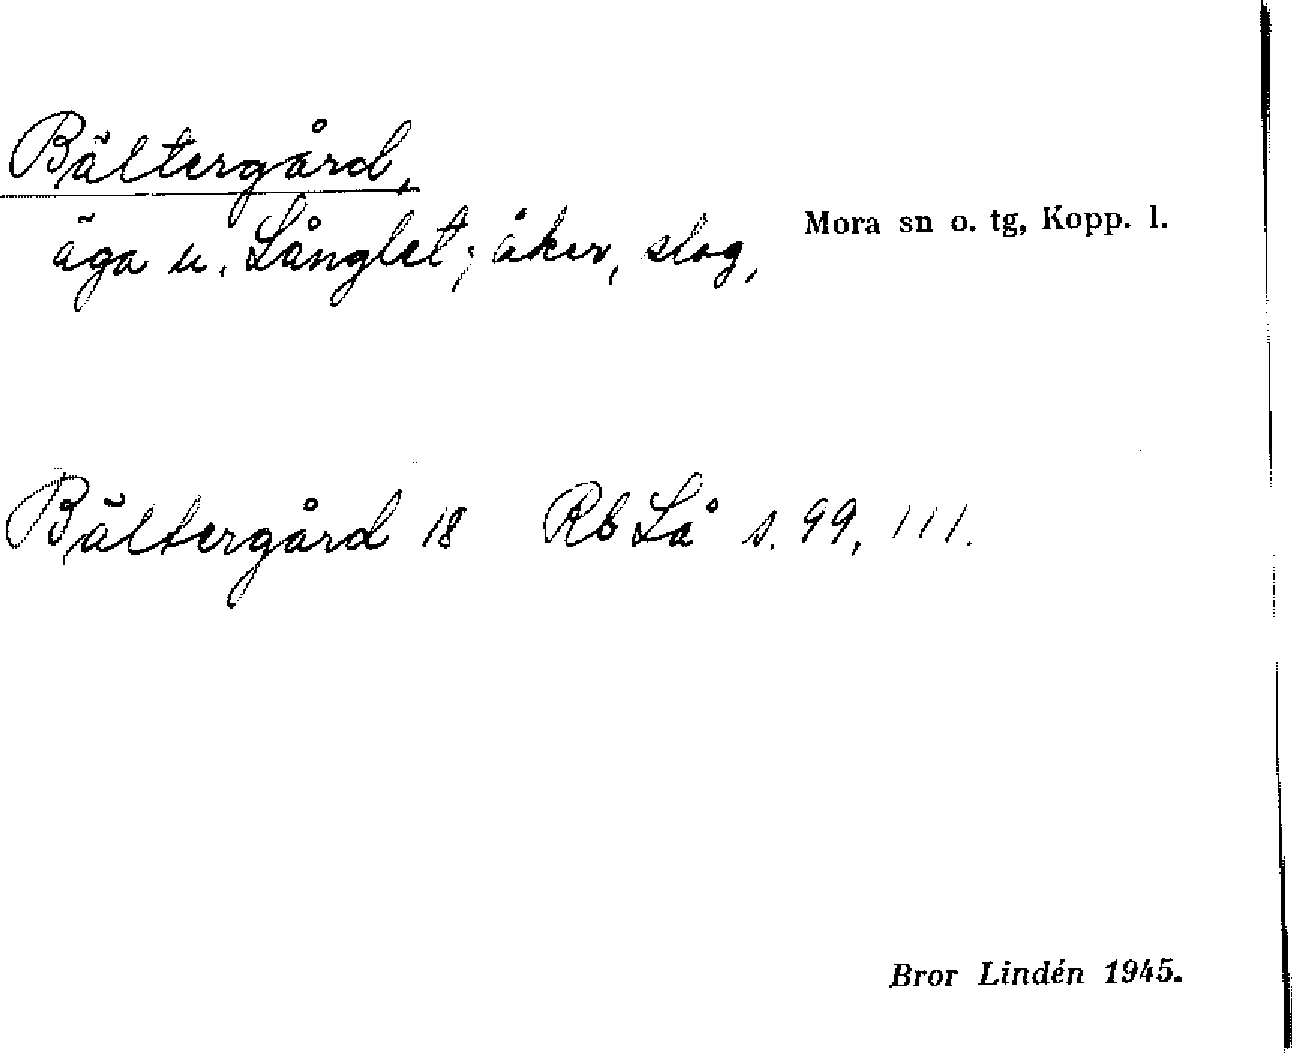 Bältergård,
äga u. Långlet; åker, slog,
Mora sn o. tg, Kopp. l.
Bältergård 18 Rb Lå s. 99, 111.
Bror Lindén 1945.